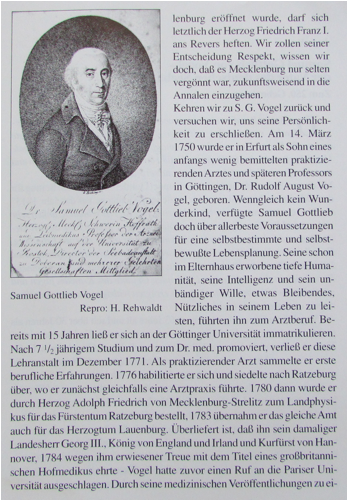 lenburg eröffnet wurde, darf sich
letztlich der Herzog Friedrich Franz I.
ans Revers heften. Wir zollen seiner
Entscheidung Respekt, wissen wir
doch, daß es Mecklenburg nur selten
vergönnt war, zukunftsweisend in die
Annalen einzugehen.
Kehren wir zu S. G. Vogel zurück und
versuchen wir, uns seine Persönlich-
keit zu erschließen. Am 14. März
1750 wurde er in Erfurt als Sohn eines
anfangs wenig bemittelten praktizie-
renden Arztes und späteren Professors
in Göttingen, Dr. Rudolf August Vo-
gel, geboren. Wenngleich kein Wun-
derkind, verfügte Samuel Gottlieb
doch über allerbeste Voraussetzungen
für eine selbstbestimmte und selbst-
bewußte Lebensplanung. Seine schon
im Elternhaus erworbene tiefe Huma-
nität, seine Intelligenz und sein un-
bändiger Wille, etwas Bleibendes,
Nützliches in seinem Leben zu lei-
sten, führten ihn zum Arztberuf. Be-
Dr. Samuel Gottlieb Vogel,
Herzogl. Meckl. Schwerin. Hofrath
und Professor der
auf der Universität
Rostok, Director der Seebadeanstalt
Doberan und mehrerer Gelehrten
Gesellschaften Mitglied.
Samuel Gottlieb Vogel
Repro: H. Rehwaldt
reits mit 15 Jahren ließ er sich an der Göttinger Universität immatrikulieren.
Nach 7 1/2 jährigem Studium und zum Dr. med. promoviert, verließ er diese
Lehranstalt im Dezember 1771. Als praktizierender Arzt sammelte er erste
berufliche Erfahrungen. 1776 habilitierte er sich und siedelte nach Ratzeburg
über, wo er zunächst gleichfalls eine Arztpraxis führte. 1780 dann wurde er
durch Herzog Adolph Friedrich von Mecklenburg-Strelitz zum Landphysi-
kus für das Fürstentum Ratzeburg bestellt, 1783 übernahm er das gleiche Amt
auch für das Herzogtum Lauenburg. Überliefert ist, daß ihn sein damaliger
Landesherr Georg III., König von England und Irland und Kurfürst von Han-
nover, 1784 wegen ihm erwiesener Treue mit dem Titel eines großbritanni-
schen Hofmedikus ehrte - Vogel hatte zuvor einen Ruf an die Pariser Uni-
versität ausgeschlagen. Durch seine medizinischen Veröffentlichungen zu ei-